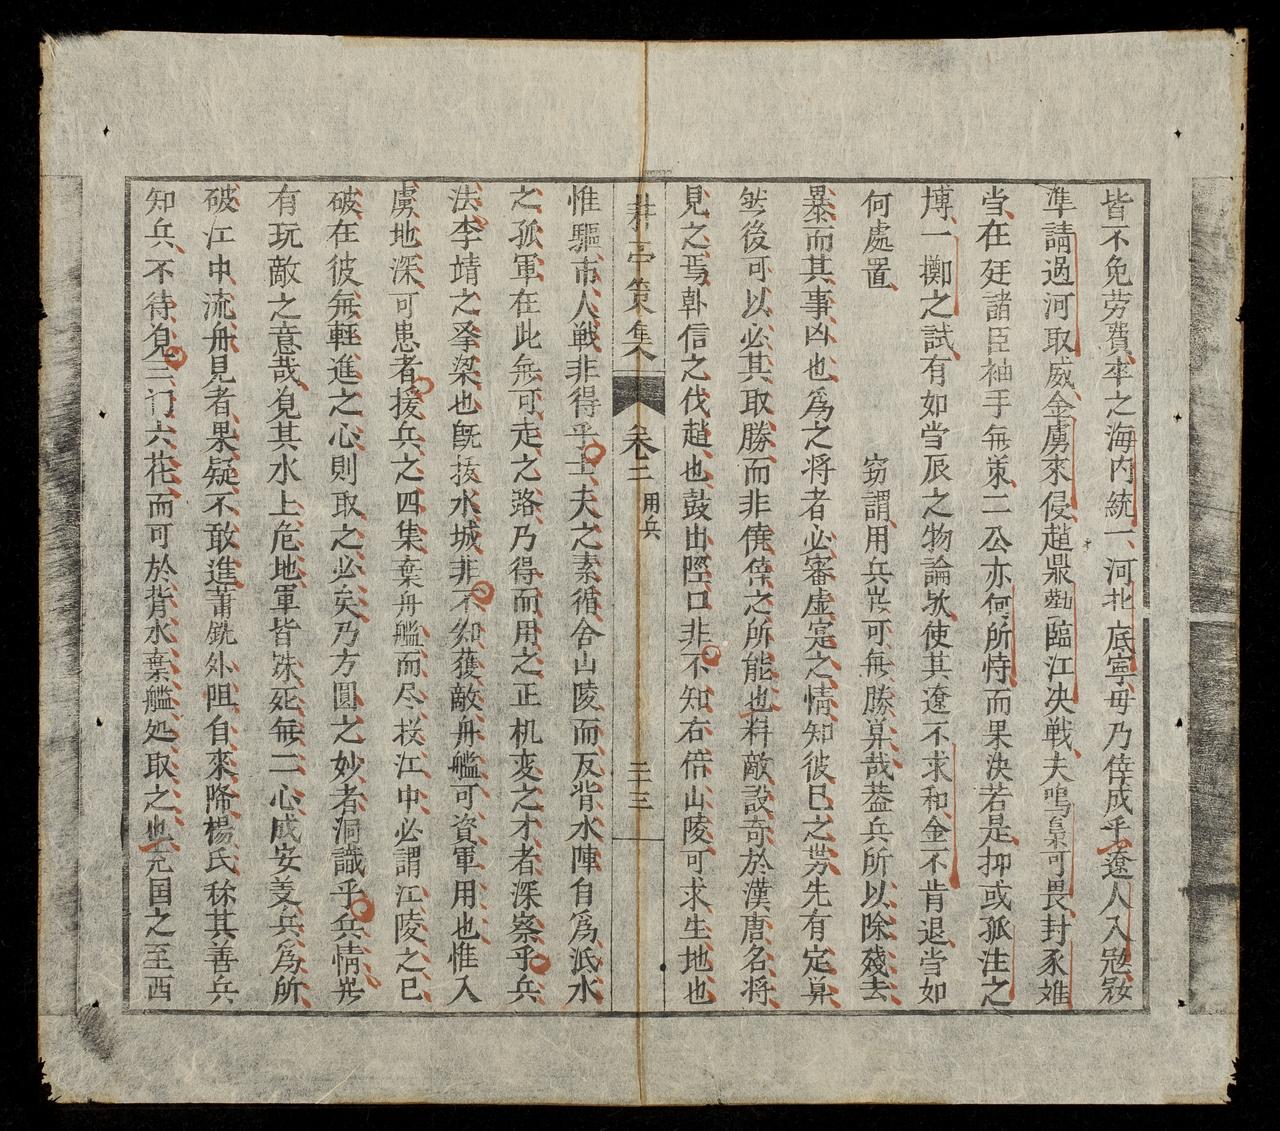 皆不免劳費率之海内統一河北底寧毋乃倖成乎遼人入宼㓂
準請過河取威金虜來侵趙鼎勸臨江决戦夫鳴梟可畏封豕难
当在廷諸臣袖手無策二公亦何所恃而果决若是抑或孤注之
博一擲之試有如当辰之物論欤使其遼不求和金不肯退当如
何處置
窃謂用兵岂可無勝筭哉葢兵所以除殘去
暴而其事凶也為之将者必審虚寔之情知彼已之势先有定筭
然後可以必其取勝而非僥倖之所能也料敵設奇於漢唐名将
見之焉韓信之伐趙也鼓出陘口非不知右倍山陵可求生地也
策集 卷二 用兵 二十三
惟驅市人戦非得乎士夫之素循合山陵而反背水陣自為泜水
之孤軍在此無可走之路乃得而用之正机变之才者深察乎兵
法李靖之爭梁也既拔水城非不知獲敵舟艦可資軍用也惟入
虜地深可患者援兵之四集棄舟艦而尽投江中必謂江陵之已
破在彼無輕進之心則取之必矣乃方圓之妙者洞識乎兵情岂
有玩敵之意哉覓其水上危地軍皆殊死無二心成安姜兵為所
破江中流舟見者果疑不敢進蕭銑外阻自來降楊氏稱其善兵
知兵不待覓三门六花而可於背水棄艦処取之也充国之至西